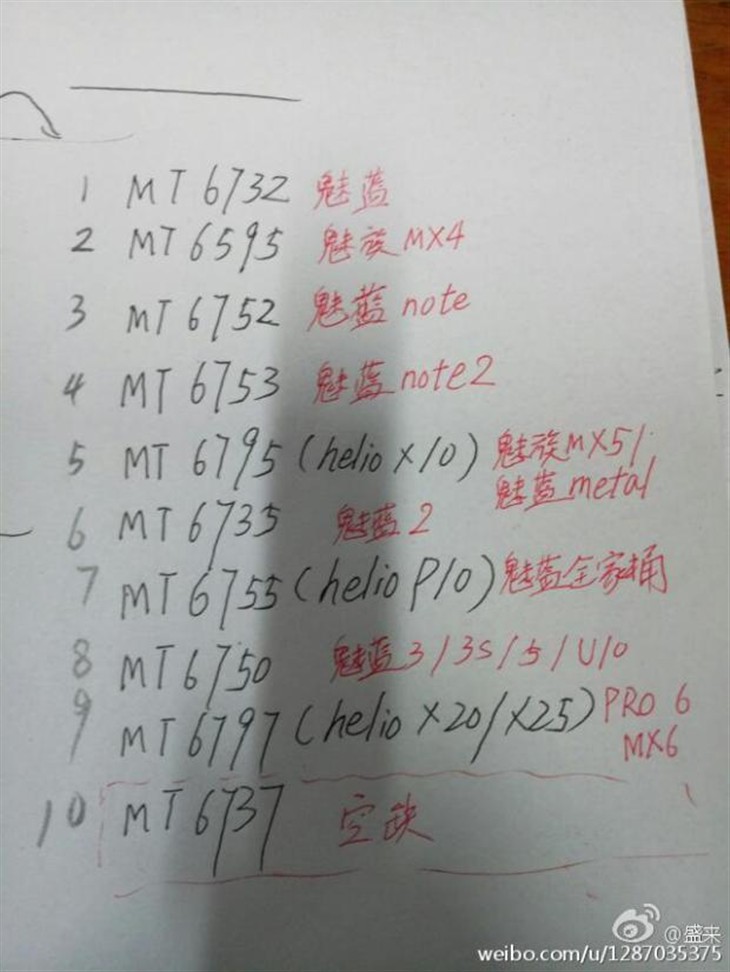 1 MT6732 魅蓝
2 MT6595 魅族MX4
3 MT6752 魅蓝note
4 MT6753 魅蓝note2
5 MT6795(helio X10) 魅族MX5/
魅蓝metal
6 MT6735 魅蓝2
7 MT6755(helio P10) 魅蓝全家桶
8 MT6750 魅蓝3/3S/5/U10
9 MT6797(helio X20/X25) PRO 6
MX6
10 MT6737 空缺
@盛来
weibo.com/u/1287035375